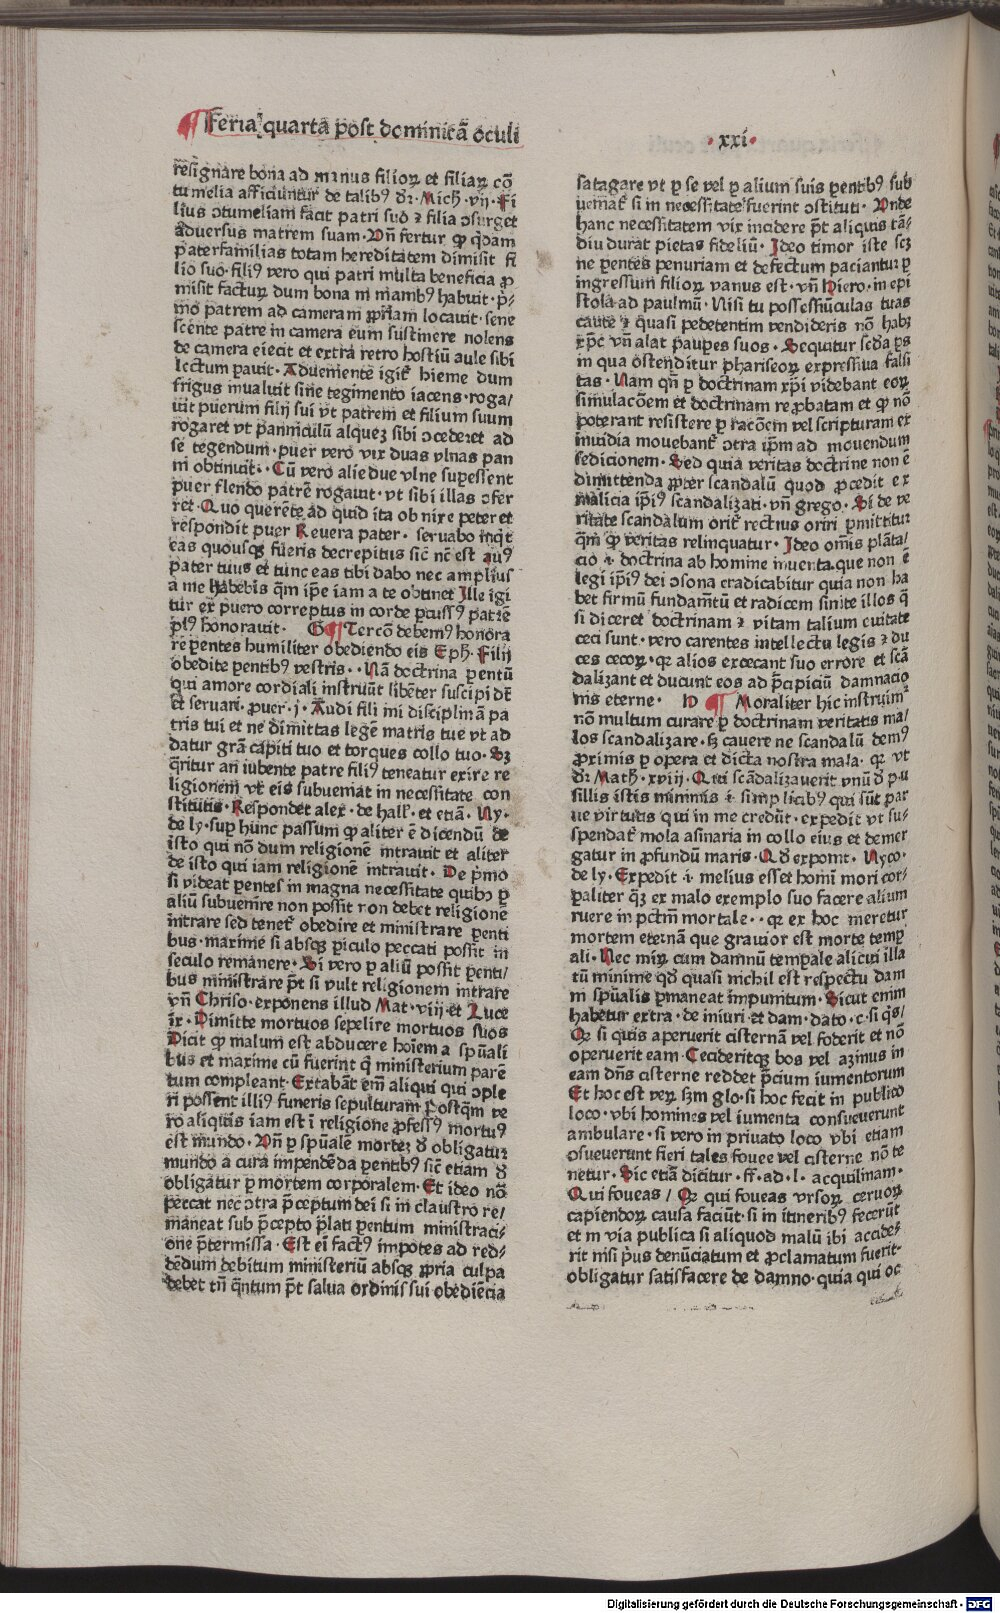 ¶ Feria quarta post dominicā oculi
·xxi·
resignare bona ad manus filioꝝ et filiaꝝ cō
tumelia afficiuntur de talibꝰ dr̄· Mich· vij· Fi
lius ɔtumeliam facit patri suo ⁊ filia ɔsurget
aduersus matrem suam· Vn̄ fertur ꝙ qͥdam
paterfamilias totam hereditatem dimisit fi
lio suo· filiꝰ vero qui patri multa beneficia ꝓ
misit facturꝰ dum bona in manibꝰ habuit· pͥ
mo patrem ad cameram ꝓpriam locauit· sene
scente patre in camera eum sustinere nolens
de camera eiecit et extra retro hostiū aule sibi
lectum parauit· Adueniente igit᷑ hieme dum
frigus inualuit sine tegimento iacens· roga/
uit puerum filij sui vt patrem et filium suum
rogaret vt panniculū aliquē sibi ɔcederet ad
se tegendum· puer vero vix duas vlnas pan
ni obtinuit· Cū vero alie due vlne supessent
puer flendo patrē rogauit· vt sibi illas ɔfer
ret· Quo querēte ad quid ita obnixe peteret
respondit puer Reuera pater· seruabo inqͥt
eas quousqꝫ fueris decrepitus sic̄ nc̄ est auꝰ
pater tuus et tunc eas tibi dabo nec ampliꝰ
a me habebis qm̄ ipe iam a te obtinet Ille igi
tur ex puero correptus in corde ꝑcussꝰ patrē
plꝰ honorauit· G ¶ Tercō debemꝰ honora
re ꝑentes humiliter obediendo eis Eph· Filij
obedite ꝑentibꝰ vestris· Nā doctrina ꝑentū
qui amore cordiali instruūt libēter suscipi dꝫ
et seruari· ꝓuer· j· Audi fili mi disciplinā pa
tris tui et ne dimittas legē matris tue vt ad
datur gr̄a capiti tuo et torques collo tuo· Sꝫ
qͥritur an iubente patre filiꝰ teneatur exire re
ligionem vt eis subueniat in necessitate con
stitutis· Respondet alex· de hall· et etiā· Ny·
de ly· suꝑ hunc passum ꝙ aliter ē dicendū de
isto qui nō dum religionē intrauit et aliter
de isto qui iam religionē intrauit· De pͥmo
si videat ꝑentes in magna necessitate quibꝰ ꝑ
aliū subuenire non possit non debet religionē
intrare sed tenet᷑ obedire et ministrare ꝑenti
bus· maxime si absqꝫ ꝑiculo peccati possit in
seculo remanere· Si vero ꝑ aliū possit ꝑenti/
bus ministrare pt̄ si vult religionem intrare
vn̄ Chriso· exponens illud Mat· viij et Luce
ix· Dimitte mortuos sepelire mortuos suos
Dicit ꝙ malum est abducere hoīem a spūali
bus et maxime cū fuerint qͥ ministerium parē
tum compleant· Extabāt em̄ aliqui qui ɔple
ri possent illiꝰ funeris sepulturam Postqͣm ve
ro aliquis iam est ī religione ꝓfessꝰ mortuꝰ
est mundo· Vn̄ ꝑ spūalē mortē d obligatur
mundo a cura impendēda ꝑentibꝰ sic̄ etiam d
obligatur ꝑ mortem corporalem· Et ideo nō
peccat nec ɔtra p̄ceptum dei si in claustro re/
maneat sub p̄cepto p̄lati ꝑentum ministraci/
one p̄termissa· Est ei factꝰ impotēs ad red/
dēdum debitum ministeriū absqꝫ ꝓpria culpa
debet tn̄ qͥntum pt̄ salua ordinis sui obediēcia
satagare vt ꝑ se vel ꝑ alium suis ꝑentibꝰ sub
ueniat᷑ si in necessitate fuerint ɔstituti· Vnde
hanc necessitatem vix incidere pt̄ aliquis tā/
diu durat pietas fideliū· Ideo timor iste scꝫ
ne ꝑentes penuriam et defectum paciantur ꝑ
ingressum filioꝝ vanus est· vn̄ Hiero· in epi
stola ad paulinū· Nisi tu possessiūculas tuas
caute ⁊ quasi pedetentim vendideris nō habꝫ
xp̄c vn̄ alat pauꝑes suos· Sequitur seda ꝑs
in qua ostenditur phariseoꝝ expressiua falsi
tas· Nam qn̄ ꝑ doctrinam xp̄i videbant eoꝝ
simulacōem et doctrinam reꝓbatam et ꝙ nō
poterant resistere ꝑ racōem vel scripturam ex
inuidia mouebant᷑ ɔtra ip̄m ad mouendum
sedicionem· Sed quia veritas doctrine non ē
dimittenda ꝓpter scandalū quod ꝓcedit ex
malicia ip̄iꝰ scandalizati· vn̄ grego· Si de ve
ritate scandalum orit᷑ rectius oriri ꝑmittitur
qͥm ꝙ veritas relinquatur· Ideo om̄is plāta/
cio ·i· doctrina ab homine inuenta· que non ē
legi ip̄iꝰ dei ɔsona eradicabitur quia non ha
bet firmū fundam̄tū et radicem sinite illos qͥ
si diceret doctrinam ⁊ vitam talium euitate
ceci sunt· vero carentes intellectu legis ⁊ du
ces cecoꝝ· qꝛ alios excecant suo errore et scā
dalizant et ducunt eos ad p̄cipiciū damnacio
nis eterne· H ¶ Moraliter hic instruimꝰ
nō multum curare ꝑ doctrinam veritatis ma/
los scandalizare· sꝫ cauere ne scandalū demꝰ
ꝓximis ꝑ opera et dicta nostra mala· qꝛ vt
dr̄ Math· xviij· Qui scādalizauerit vnū d pu
sillis istis minimis ·i· simplicibꝰ qui sūt par
ue virtutis qui in me credūt· expedit vt su/
spendat᷑ mola asinaria in collo eius et demer
gatur in ꝓfundū maris· Qd exponit· Nyco·
de ly· Expedit ·i· melius esset homī mori cor/
ꝑaliter qͣꝫ ex malo exemplo suo facere alium
ruere in pctm̄ mortale· qꝛ ex hoc meretur
mortem eternā que grauior est morte temꝑ
ali· Nec miꝝ cum damnū temꝑale alicui illa
tū minime qd̄ quasi nichil est respectu dam
ni spūalis ꝑmaneat impunitum· Sicut enim
habetur extra· de iniuri· et dam· dato· c· si qͥs/
Qꝛ si quis aperuerit cisternā vel foderit et nō
operuerit eam· Cecideritqꝫ bos vel azinus in
eam dn̄s cisterne reddet p̄cium iumentorum
Et hoc est veꝝ sꝫm glo· si hoc fecit in publico
loco· vbi homines vel iumenta consueuerunt
ambulare· si vero in priuato loco vbi etiam
ɔsueuerunt fieri tales fouee vel cisterne nō te
netur· Sic etiā dicitur· ff· ad· l· acquiliam·
Qui foueas / Qꝛ qui foueas vrsoꝝ ceruoꝝ
capiendoꝝ causa faciūt· si in itineribꝰ fecerūt
et in via publica si aliquod malū ibi accide/
rit nisi pͥus denūciatum et ꝓclamatum fuerit·
obligatur satisfacere de damno· quia qui oc
Digitalisierung gefördert durch die Deutsche Forschungsgemeinschaft - DFG